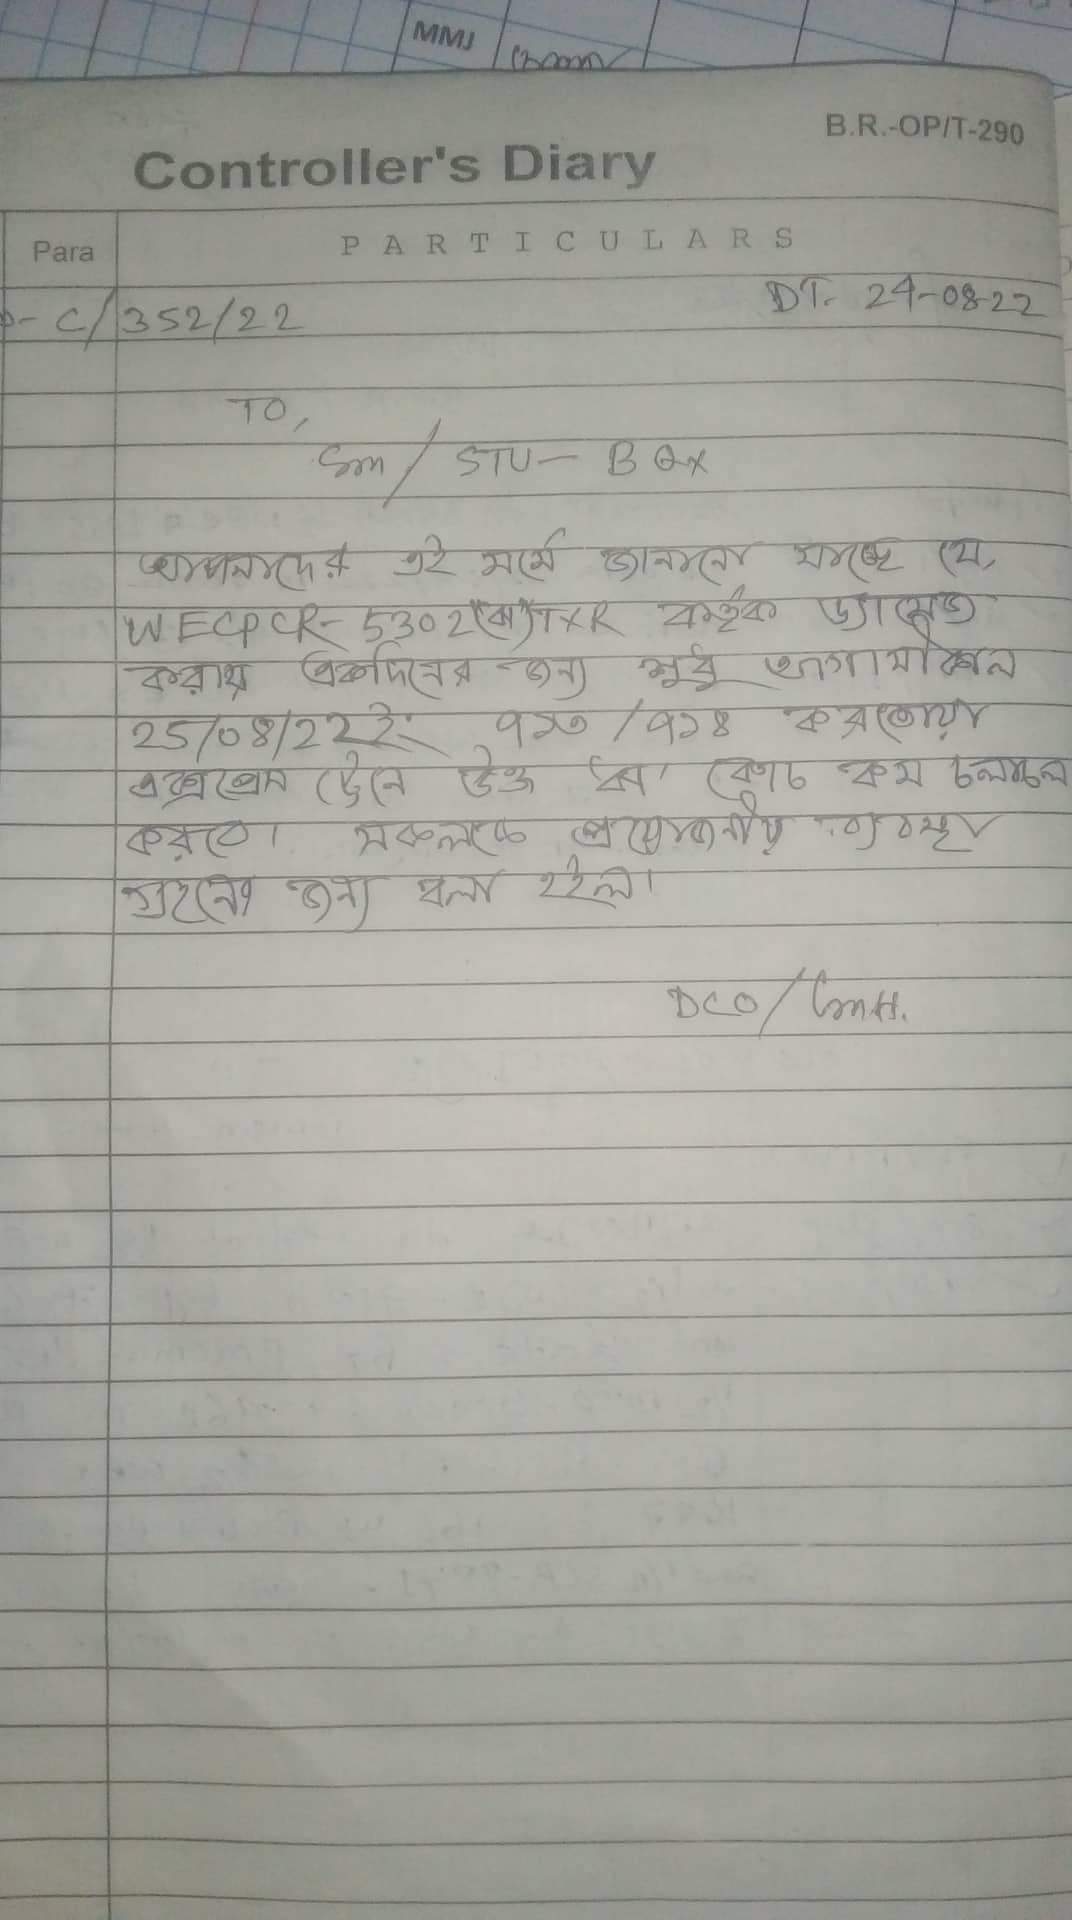 MMJ
B.R.-OP/T-290
Controller's Diary
Para
PARTICULARS
- C/352/22
DT- 24-08-22
TO,
Sm / STU - BQX
আপনাদের এই মর্মে জানানো যাচ্ছে যে,
WECPCR- 5302(ঝ) TXR কর্তৃক ড্যামেজ
করায় একদিনের জন্য শুধু আগামীকাল
25/08/22 ইং ৭১৩/৭১৪ করতোয়া
এক্সপ্রেস ট্রেনে উক্ত কোচ কম চলাচল
করবে। সকলকে প্রয়োজনীয় ব্যবস্থা
গ্রহনের জন্য বলা হইল।
DCO/LmH.